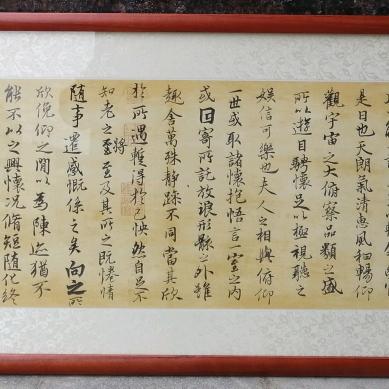 是日也天朗氣清惠風和暢
觀宇宙之大俯察品類之盛
所以遊目騁懷足以極視聽之
娛信可樂也夫人之相與俯仰
一世或取諸懷抱悟言一室之內
或因寄所託放浪形骸之外雖
趣舍萬殊靜躁不同當其欣
於所遇蹔得於己怏然自足不
知老之將至及其所之既惓情
隨事遷感慨係之矣向之所
欣俛仰之間以為陳迹猶不
能不以之興懷況脩短隨化終